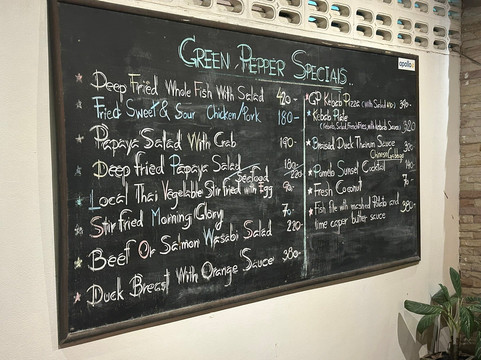 GREEN PEPPER SPECIALS..
apollo
Deep Fried Whole Fish With Salad 420-
Fried Sweet & Sour Chicken/Pork 180-
Papaya Salad With Crab 190-
Deep fried Papaya Salad 180-
Seafood 220-
Local Thai Vegetable Stir fried with Egg 90-
Stir fried Morning Glory 70-
Beef Or Salmon Wasabi Salad 220-
Duck Breast With Orange Sauce 380-
GP Kebab Pizza (with Salad)
Kebab Plate
320
Braised Duck Sauce
Chinese Cabbage
Pomelo Sunset Cocktail
Fresh Coconut 70-
Fish file with mashed Potato and 380-
lime caper butter sauce